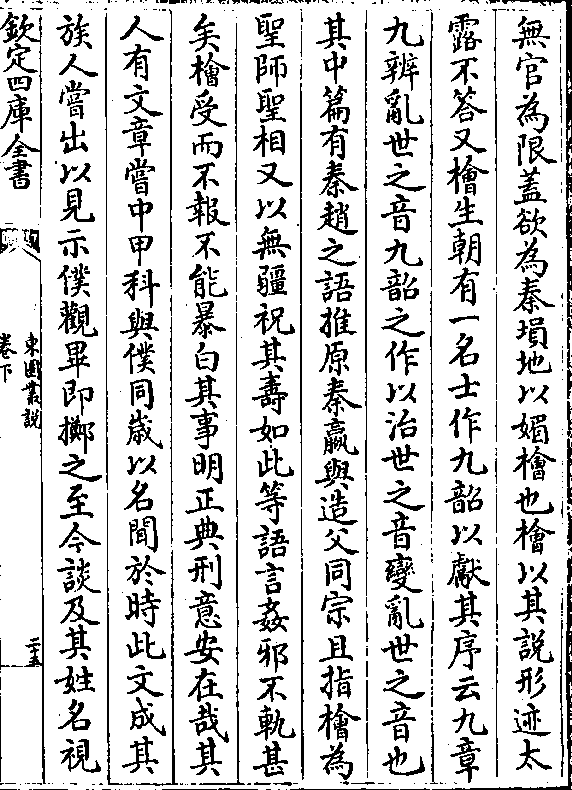 無官為限蓋欲為秦塤地以媚檜也檜以其說形迹太
露不答又檜生朝有一名士作九韶以獻其序云九章
九辨亂世之音九韶之作以治世之音變亂世之音也
其中篇有秦趙之語推原秦嬴與造父同宗且指檜為
聖師聖相又以無疆祝其壽如此等語言姦邪不軌甚
矣檜受而不報不能暴白其事明正典刑意安在哉其
人有文章嘗中甲科與僕同歲以名聞於時此文成其
族人嘗出以見示僕觀畢即擲之至今談及其姓名視
欽定四庫全書
東園叢說
卷下
二十五